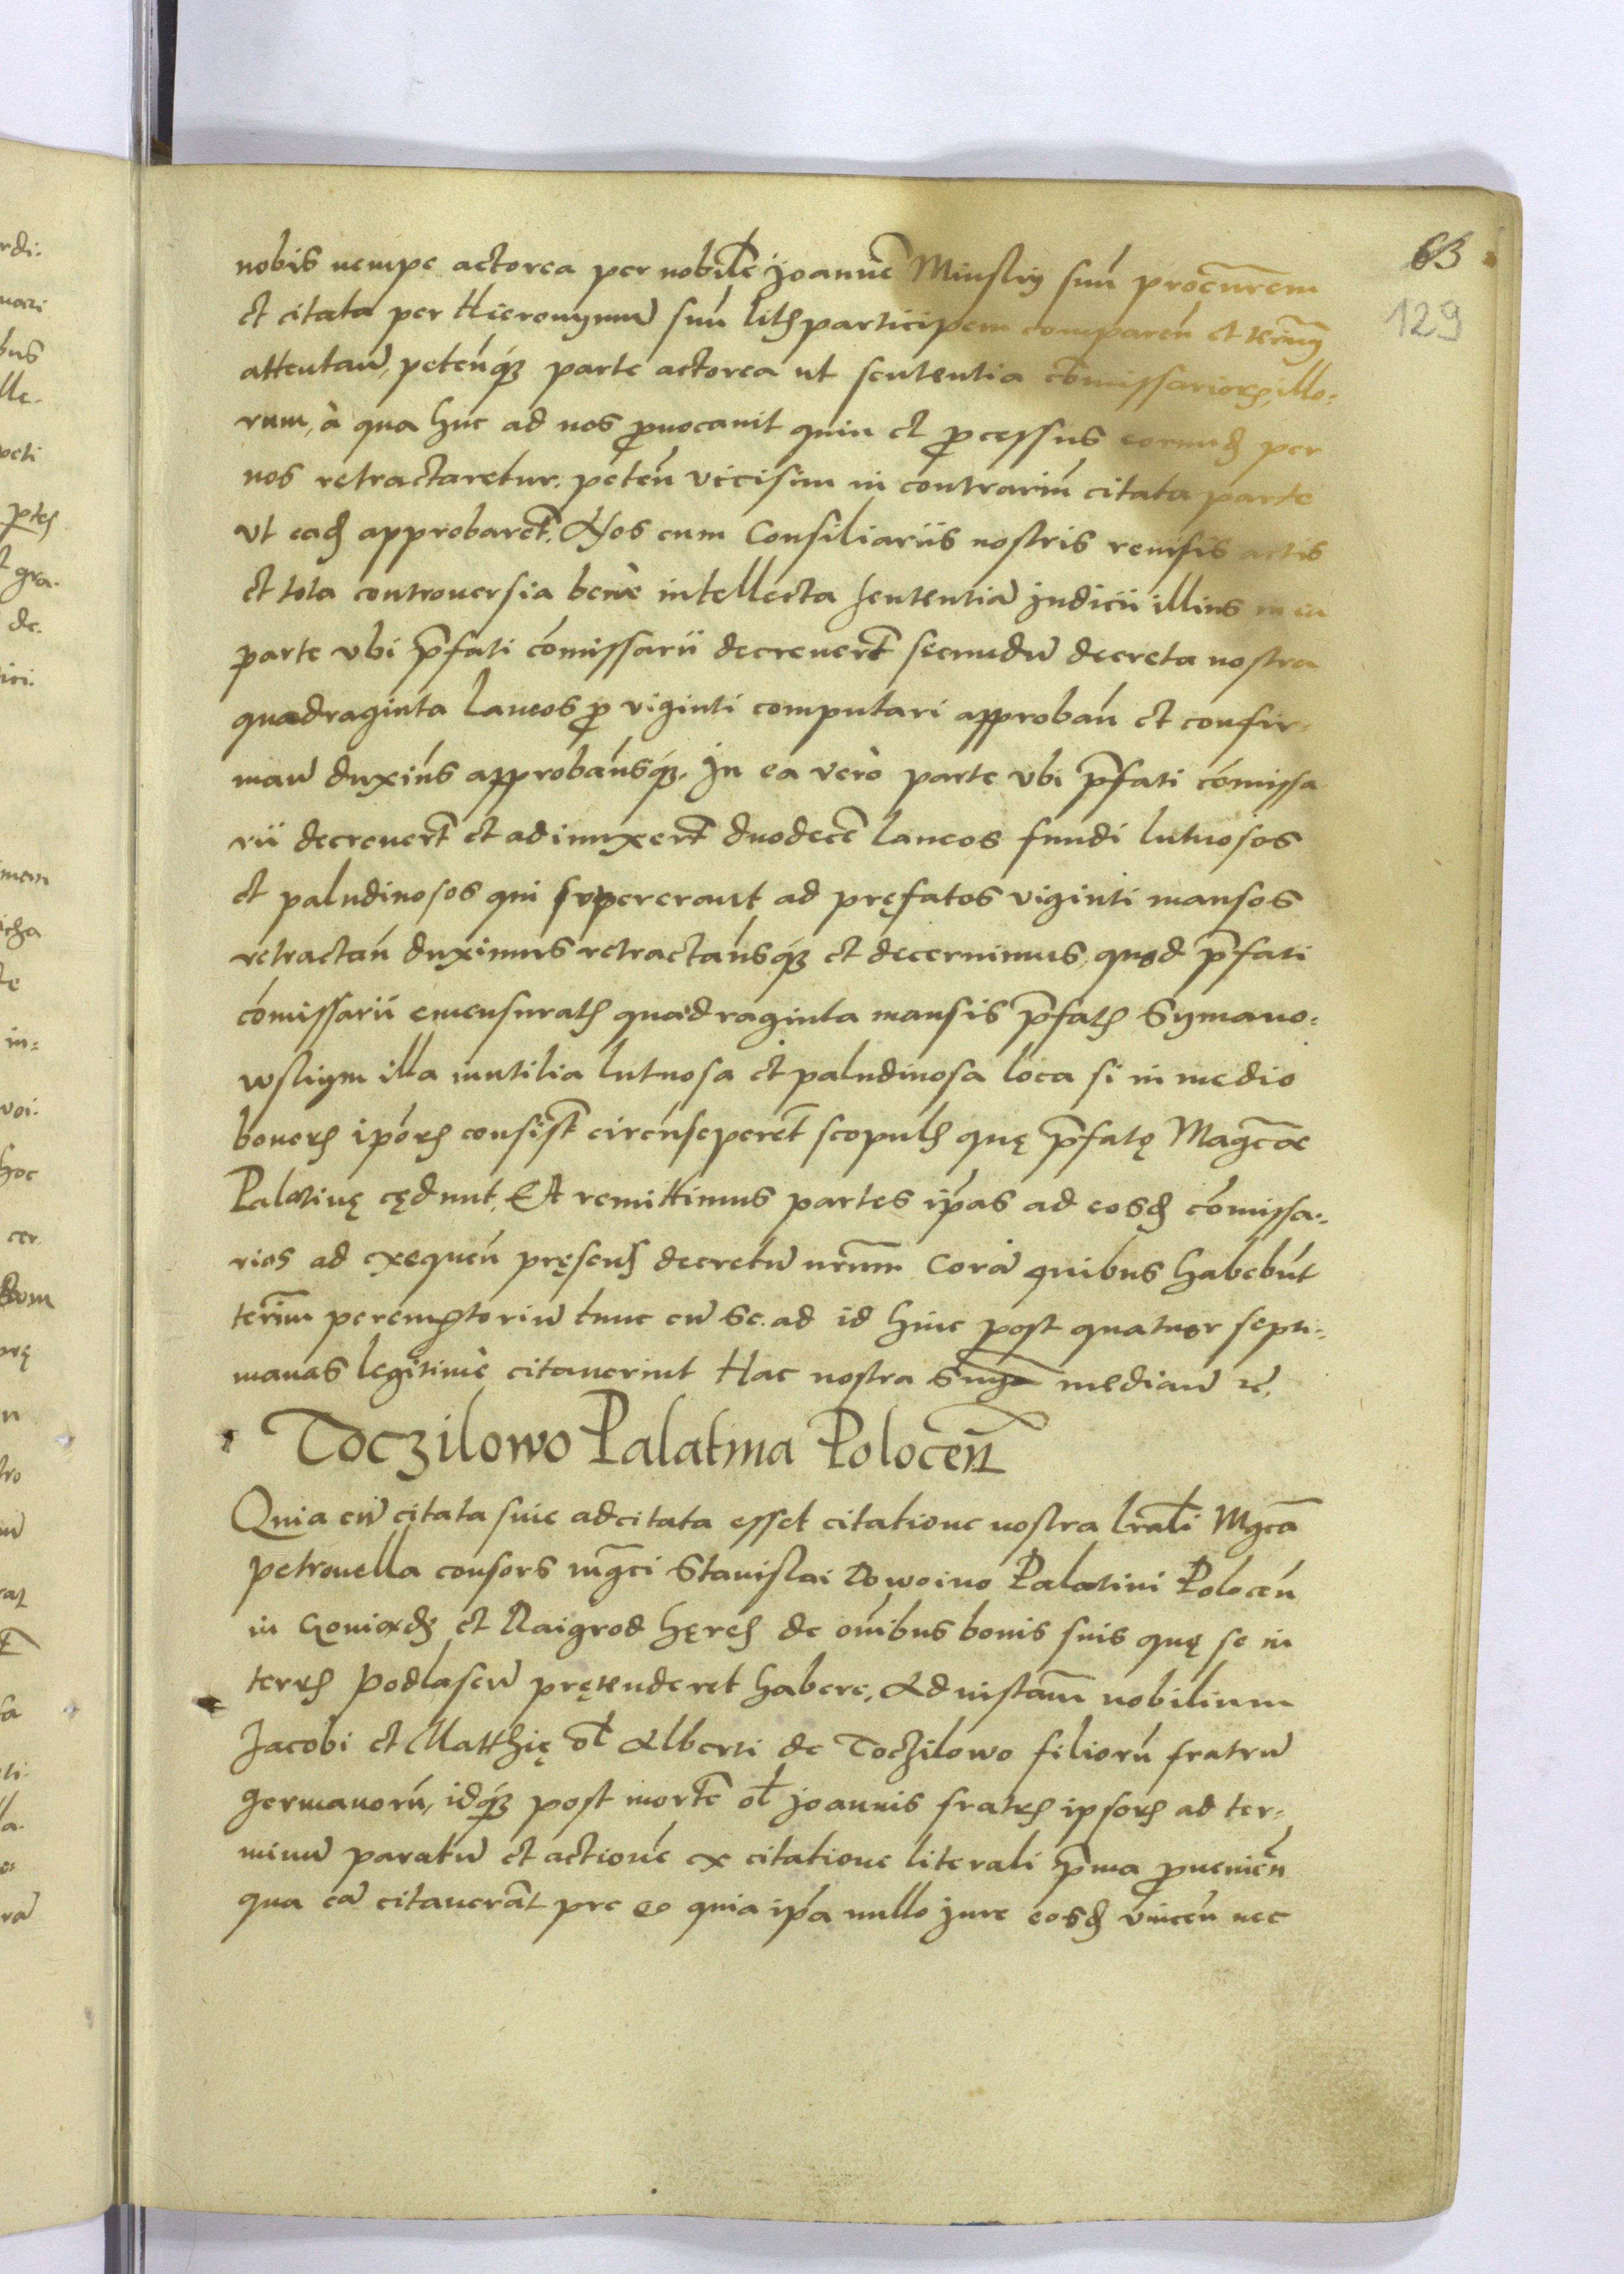 63
129
nobis nempe actorea per nobilẽ Joannẽ Minskij suũ procurẽm
et citata per Hieronymũ suũ litis participem compareñ et terminũ
attentañ, peteñq₃ parte actorea ut sententia cõmissarioꝝ illo-
rum, à qua huc ad nos ꝓvocavit quin et ꝓcessus eorund̃ per
nos retractaretur. peteñ vicisim in contrariũ citata parte
ut ead̃ approbaret̃. Nos cum Consiliariis nostris revisis actis
et tota controversia bene intellecta sententiã Judicii illius in ea
parte vbi p̃fati cõmissarii decrever̃t secundũ decreta nostra
quadraginta laneos ꝓ viginti computari approbañ et confir-
mañ duxim̃s approbam̃sq₃. In ea verò parte vbi p̃fati cõmissa
rii decrever̃t et adiunxer̃t duodecẽ laneos fundi lutuosos
et paludinosos qui supererant ad pręfatos viginti mansos
retractañ duximus retractam̃sq₃ et decernimus, quod p̃fati
cõmissarii emensuratis quadraginta mansis p̃fatis Symano-
wskiym illa inutilia lutuosa et paludinosa loca si in medio
bonoꝝ ip̃oꝝ consist̃ circũseperẽt scopulis quę p̃fatę Mag̃cae
Palatinę cędunt. Et remittimus partes ip̃as ad eosd̃ cõmissa-
rios ad exequeñ pręsens decretũ nr̃um Corã quibus habebũt
term̃ peremptoriũ tunc cũ se ad id hinc post quatuor septi-
manas legitimè citaverint Hac nostra Sñia mediañ ꝛc̃.
Toczilowo Palatina Poloceñ
Quia cũ citata sive adcitata esset citatione nostra lr̃ali Mgcã
petronella consors mg̃ci Stanislai Dowoino Palatini Poloceñ
in Goniądz et Raigrod hęres de oĩbus bonis suis quę se in
terris Podlaseñ prętenderet habere, Ad instañ nobilium
Jacobi et Matthię ol̃ Alberti de Toczilowo filiorũ fratrũ
germanorũ, idq₃ post mortẽ ol̃ Joannis fratris ipsoꝝ ad ter-
minũ paratũ et actionẽ ex citatione literali p̃ma ꝓvenieñ
qua eã citaverãt pro eo quia ip̃a nullo jure eosd̃ vinceñ nec